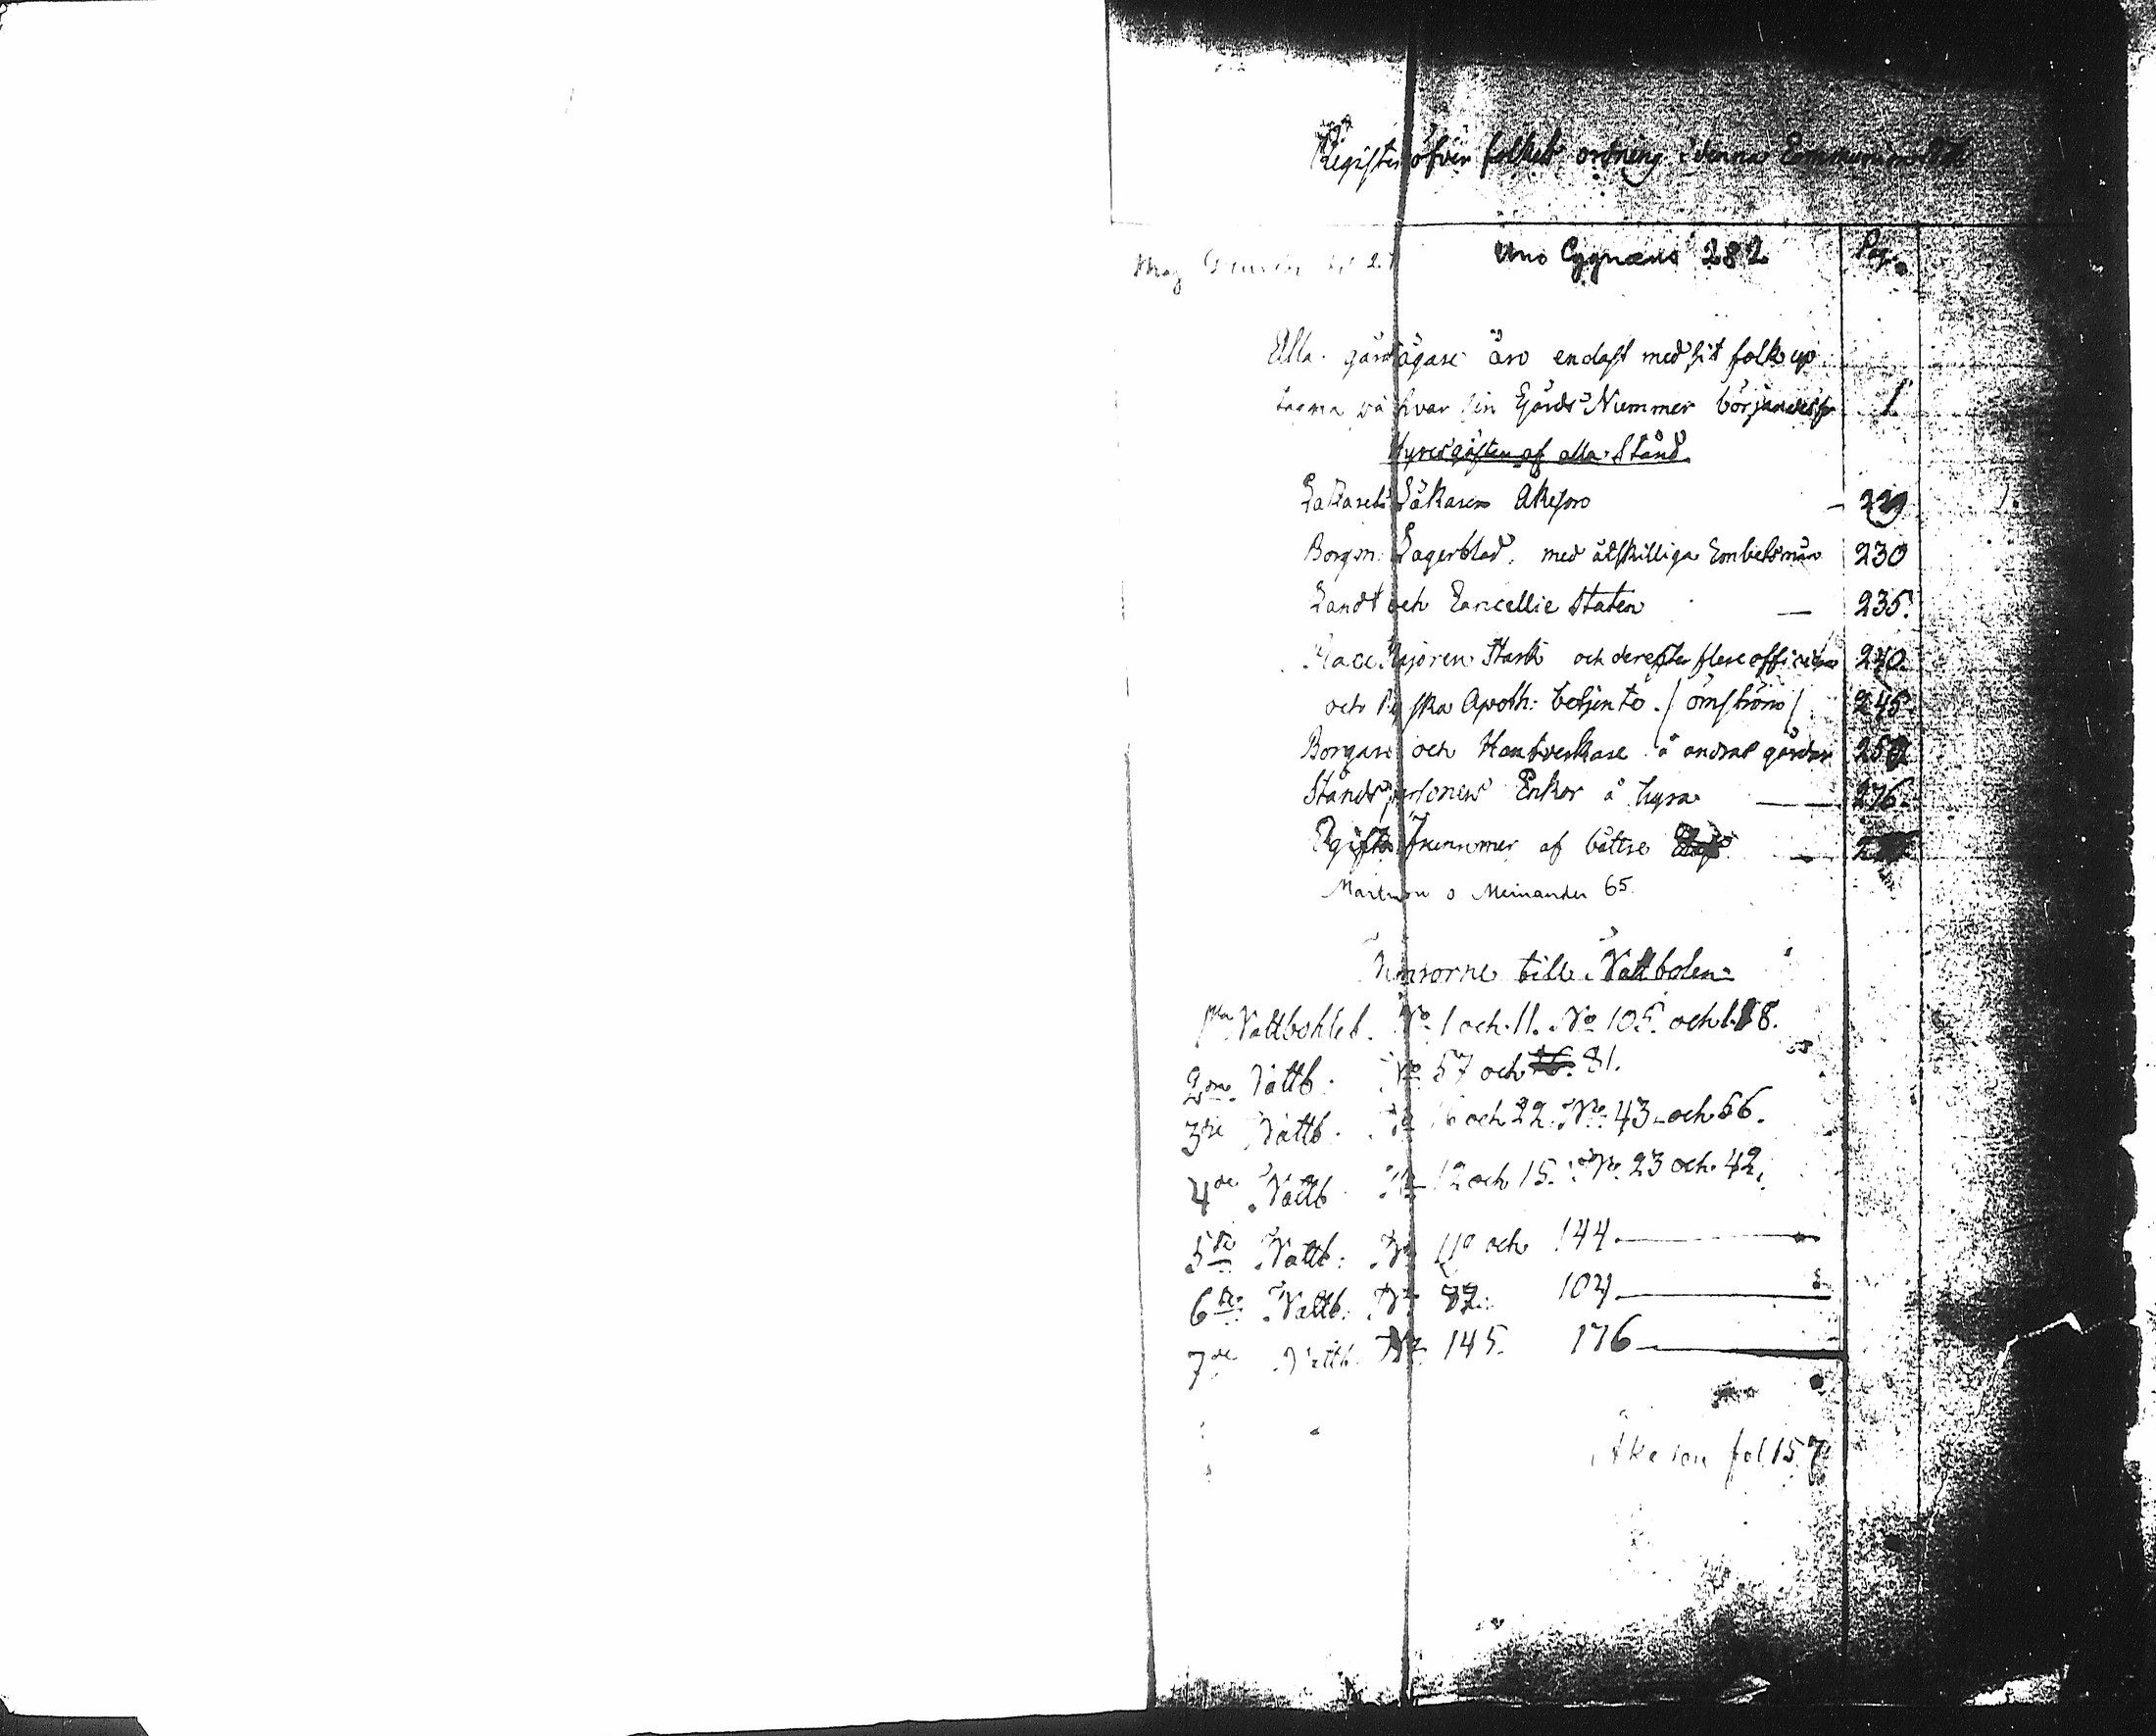 Register öfver folkets ordning i denna
Uno Cygnæus 282 Pag.
Alla gårdägare äro endast med sit folk up
tagna på hvar sin Gårds Nummer börjandes fr 1
Hyresgäster af alla Stånd
Läkaren Akeson — 229
Borgm: Lagerblad, med åtskilliga Embetsmän 230
Landt och Cancellie Staten — 235.
Majoren Stark och derefter flere officerare 240
och Ryska Apoth: betjente 245
Borgare och Hantverkare å andras gårdar 252
Stånds personers Enkor å hyra — 276
Ogifta fruntimmer af bättre
Martinson o Meinander 65
till Vattbolen
1sta Vattbohlet. No 1 och 11. No 105. och 118.
2dra Vattb. No 57 och 81.
3die Vattb. No 16 och 22. No 43 och 56.
4de Vattb. No 12 och 15. No 23 och 42.
5te Vattb. No 119 och 144.
6te Vattb. No 82. 104
7de Vattb. No 145. 176
Åkeson fol 157